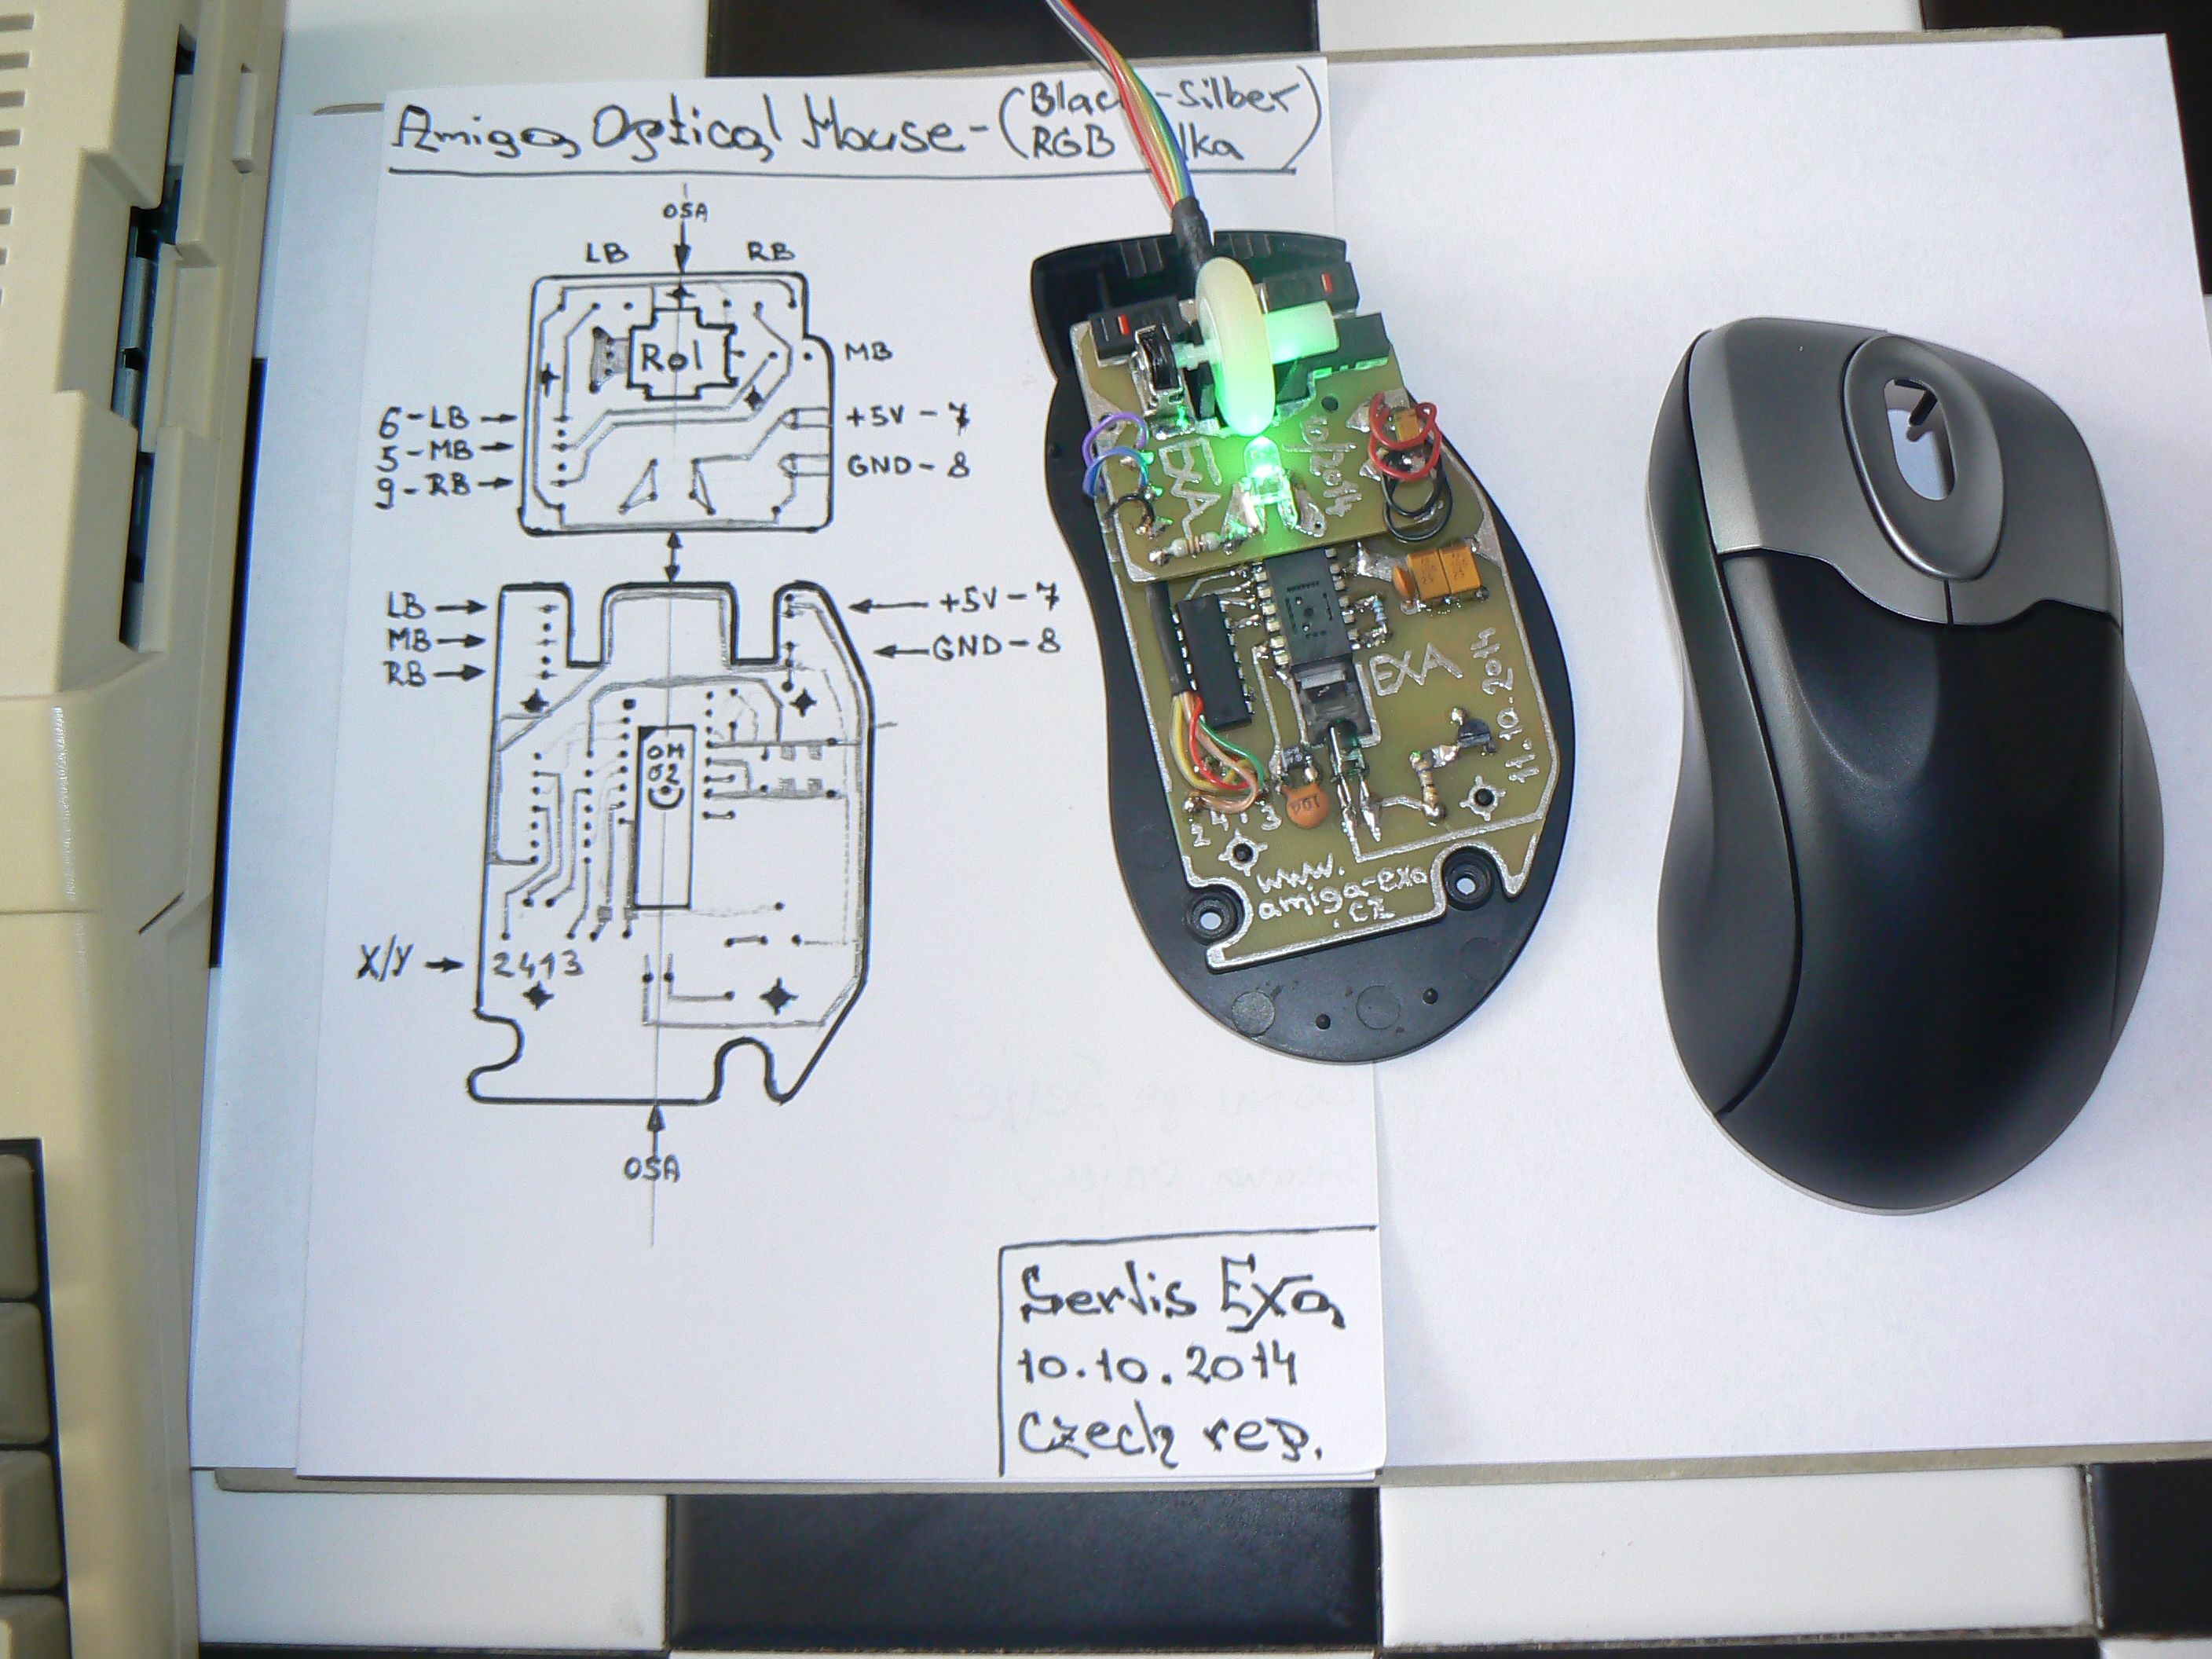 Amiga Optical Mouse - (Black-Silber
RGB
OSA
LB RB
Rol
MB
6-LB
5-MB
9-RB
+5V-7
GND-8
LB
MB
RB
+5V-7
GND-8
OM
02
X/Y
2413
OSA
Servis Exa
10.10.2014
Czech rep.
EXA
EXA
11.10.2014
2413
www.
amiga-exa
.cz